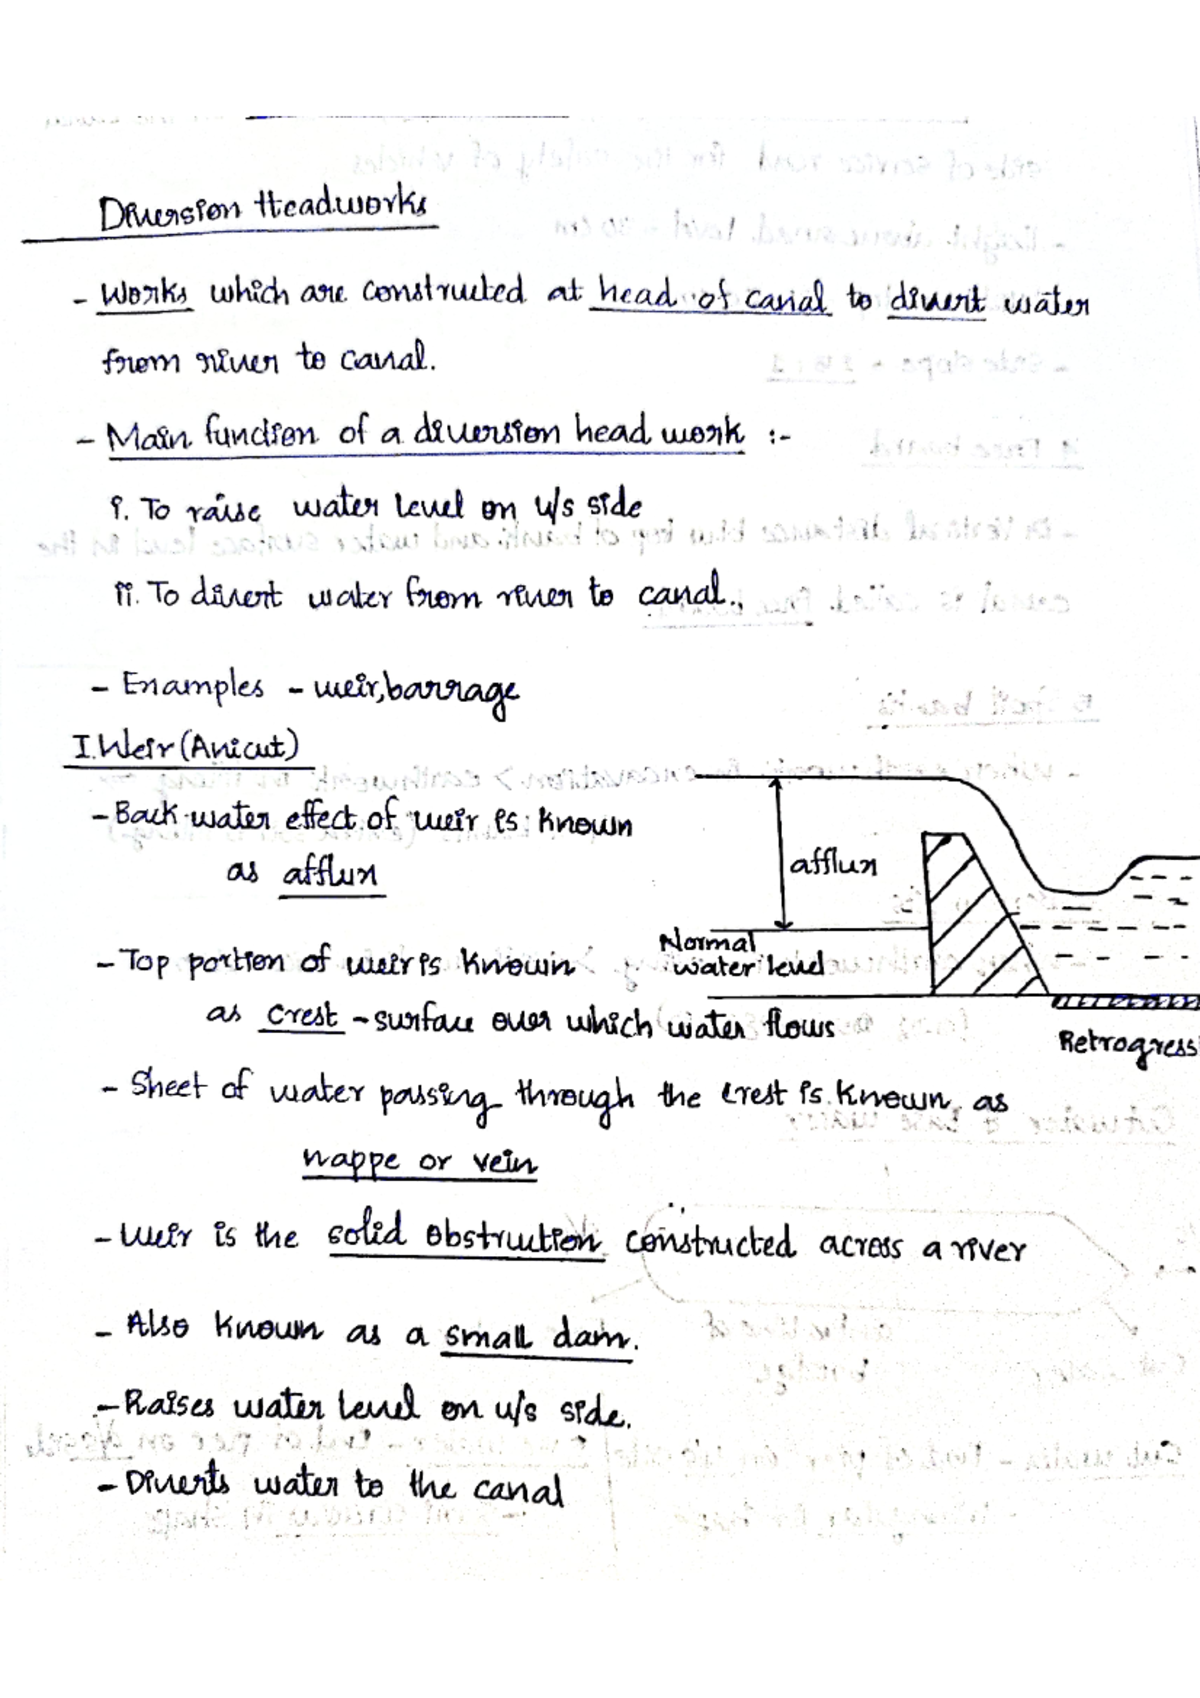 Diversion Headworks
- Works which are constructed at head of canal to divert water
from river to canal.
- Main function of a diversion head work :-
i. To raise water level on u/s side
ii. To divert water from river to canal.
- Examples - weir, barrage
I. Weir (Anicut)
- Back water effect of weir is known
as afflux
afflux
Normal
water level
- Top portion of weir is known
as crest - surface over which water flows
Retrogress
- Sheet of water passing through the crest is known as
nappe or vein
- Weir is the solid obstruction constructed across a river
- Also known as a small dam.
- Raises water level on u/s side.
- Diverts water to the canal